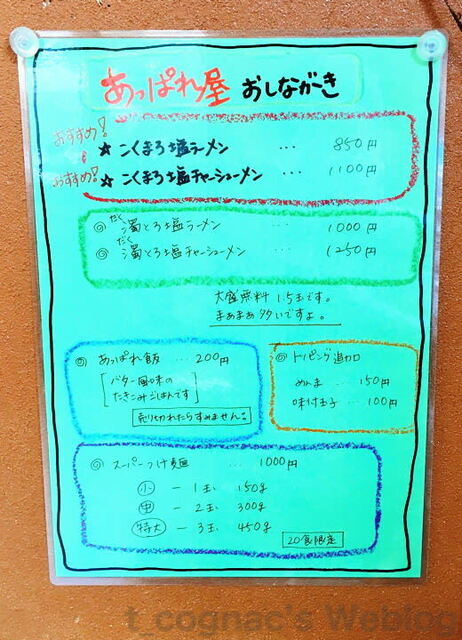 あっぱれ屋 おしながき
おすすめ! ☆ こくまろ塩ラーメン ... 850円
おすすめ! ☆ こくまろ塩チャーシューメン ... 1100円
◎ 濁とろ塩ラーメン ... 1000円
だく
◎ 濁とろ塩チャーシューメン ... 1250円
だく
大盛無料 1.5玉です。
まぁまぁ多いですよ。
◎ あっぱれ飯 ... 200円
[バター風味の
たきこみごはんです]
売り切れたらすみません。
◎ トッピング追加
めんま ... 150円
味付玉子 ... 100円
◎ スーパーつけ麺 ... 1000円
小 - 1玉 150g
中 - 2玉 300g
特大 - 3玉 450g
20食限定
t_cognac's Weblog